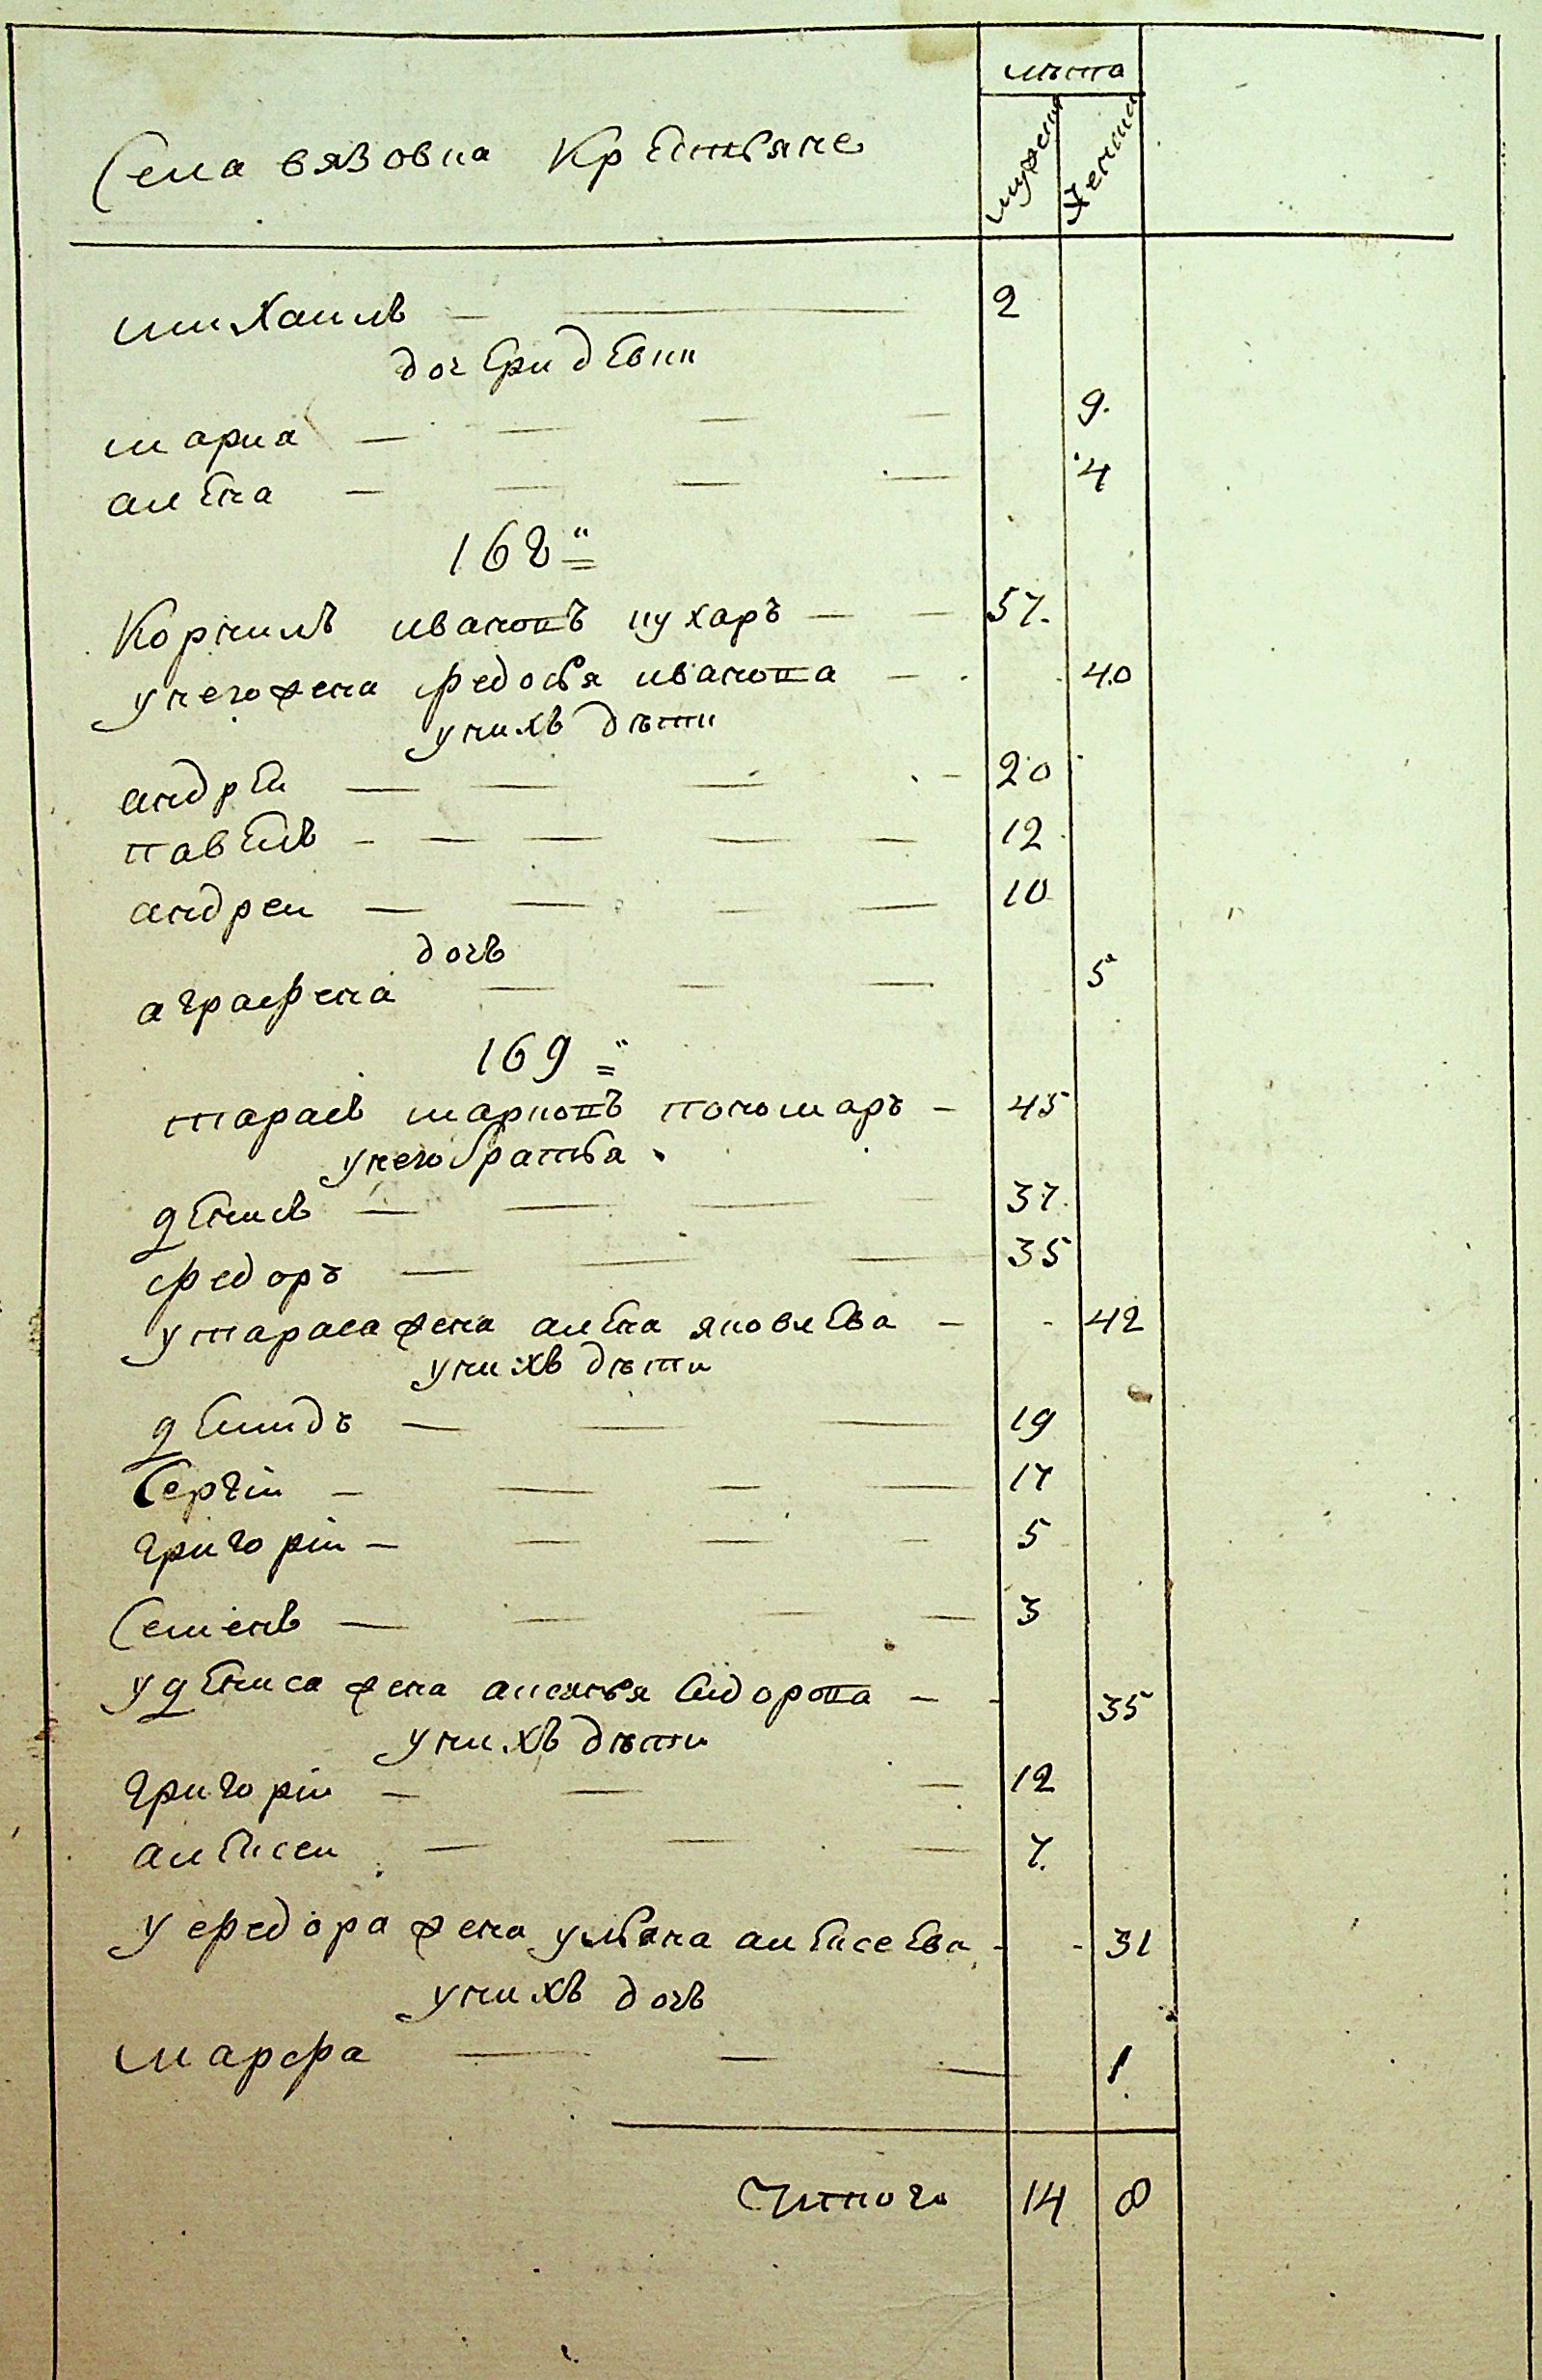 лѣта
Села вязовка крестьяне мужеска женска
михаилъ — — 2
дочери девки
мариа — — — — 9.
алена — — — — 4
168
Корнилъ ивановъ кухаръ — — 57.
унего жена федосья иванова — 40
унихъ дѣти
андреи — — — — 20
павелъ — — — — — 12
андреи — — — — 10
дочь
аграфена — — — 5
169
тарасъ марковъ пономаръ — 45
унего братья
денисъ — — — — 37.
федоръ — — — 35
утараса жена алена яковлева — 42
унихъ дѣти
демидъ — — — 19
Сергіи — — — — 17
григоріи — — — — 5
Семенъ — — — — 3
уdениса жена аксинья Сидорова — 35
унихъ дѣти
григоріи — — — 12
алексеи — — — 7.
уфедора жена ульяна алексеева — 31
унихъ дочь
марфа — — — 1.
Итого 14 8